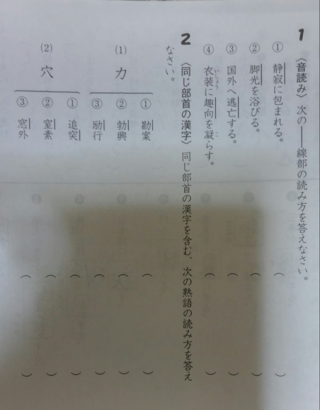 1 〈音読み〉 次の――線部の読み方を答えなさい。
① 静寂に包まれる。 （ ）
② 脚光を浴びる。 （ ）
③ 国外へ逃亡する。 （ ）
④ 衣装に趣向を凝らす。 （ ）
2 〈同じ部首の漢字〉 同じ部首の漢字を含む、次の熟語の読み方を答え
なさい。
(1) 力
① 勘案 （ ）
② 勃興 （ ）
③ 励行 （ ）
(2) 穴
① 追突 （ ）
② 窒素 （ ）
③ 窓外 （ ）